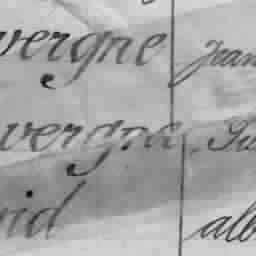 vergne Jean
vergne
vid alb